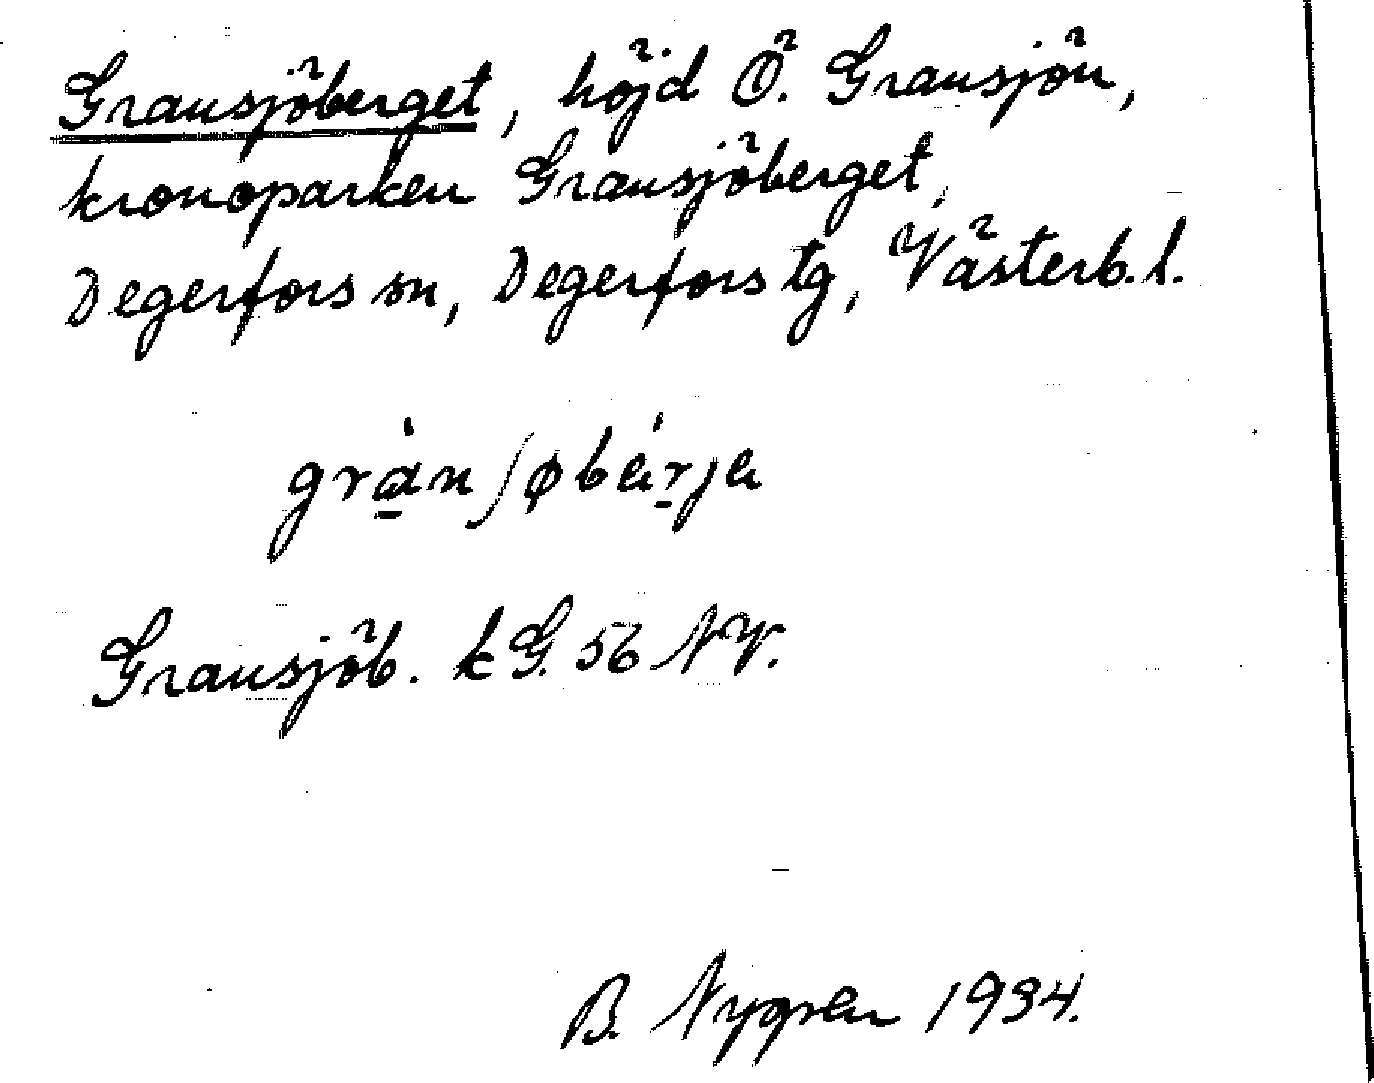 Gransjöberget, höjd Ö. Gransjön,
kronoparken Gransjöberget,
Degerfors sn, Degerfors tg, Västerb. l.
grà̱nʃøbéṟje
Gransjöb. kG. 56 NV.
B. Nygren 1934.